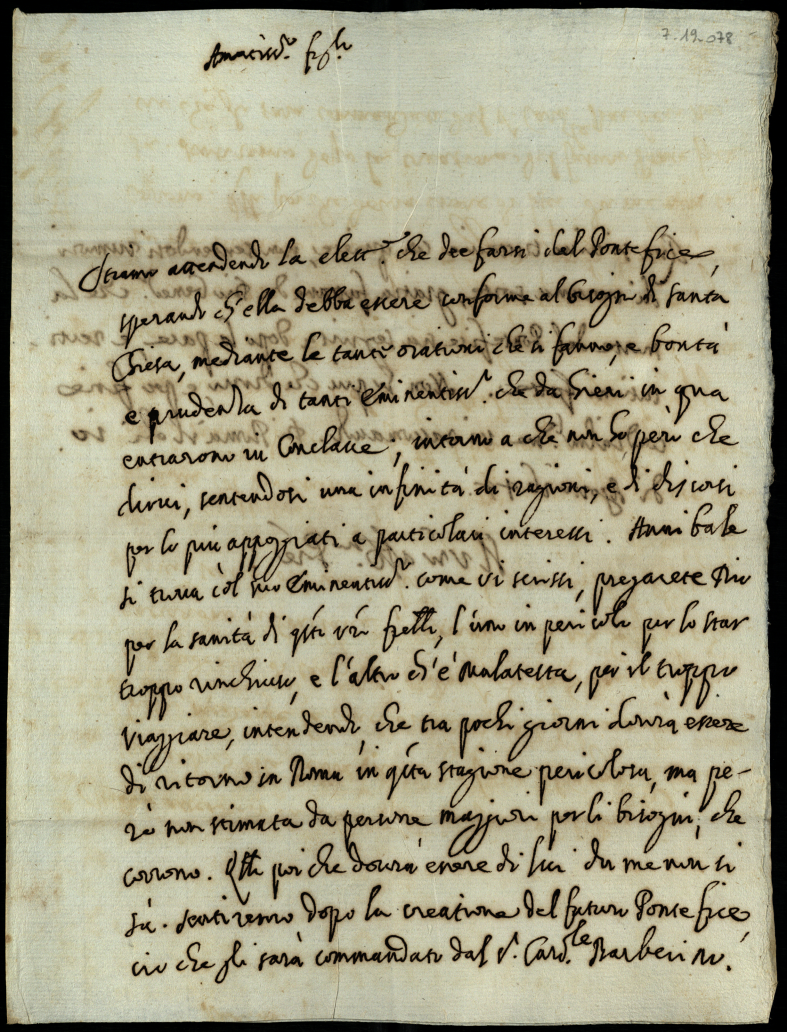 7.19.078
Amatiss.e figle
Stiamo attendendo la elett.e che dee farsi del Pontefice,
sperando ch'ella debba essere conforme al bisogni di santa
Chiesa, mediante le tante orationi che si fanno, e bontà
e prudenza di tanti Eminentiss.i che da hieri in qua
entrarono in Conclave, intorno a che non so però che
dirvi, sentendosi una infinità di ragioni, e di discorsi
per lo più appoggiati a particolari interessi. Annibale
si trova col suo Eminentiss.o come vi scrissi, pregarete Dio
per la sanità di q.sti v.ri fr̃elli, l'uno in pericolo per lo star
troppo rinchiuso, e l'altro ch'è Malatesta, per il troppo
viaggiare, intendendo, che tra pochi giorni dovrà essere
di ritorno in Roma in q.sta stagione pericolosa, ma pe-
rò non stimata da persone maggiori per li bisogni, che
corrono. Q.llo poi che dovrà essere di lui da me non si
sà. sentiremo dopo la creatione del futuro Pontefice,
ciò che gli sarà commandato dal s.r Card.le Barberino.